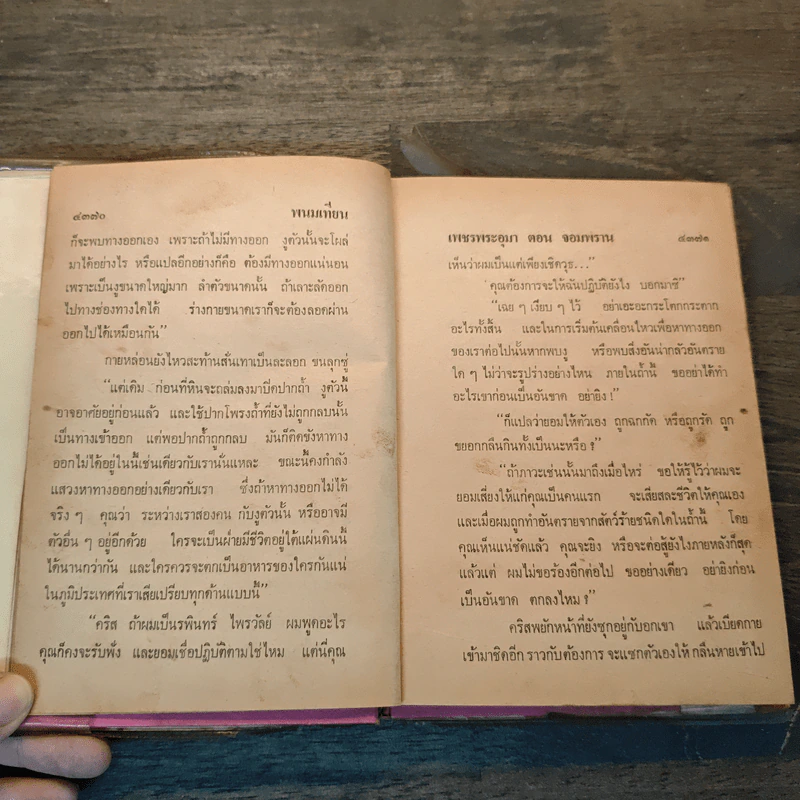 ๔๓๗๐ พนมเทียน
ก็จะพบทางออกเอง เพราะถ้าไม่มีทางออก งูตัวนั้นจะโผล่
มาได้อย่างไร หรือแปลอีกอย่างก็คือ ต้องมีทางออกแน่นอน
เพราะเป็นงูขนาดใหญ่มาก ลำตัวขนาดนั้น ถ้าเลาะลัดออก
ไปทางช่องทางใดได้ ร่างกายขนาดเราก็จะต้องลอดผ่าน
ออกไปได้เหมือนกัน”
กายหล่อนยังไหวสะท้านสั่นเทาเป็นละลอก ขนลุกซู่
“แต่เดิม ก่อนที่หินจะถล่มลงมาปิดปากถ้ำ งูตัวนี้
อาจอาศัยอยู่ก่อนแล้ว และใช้ปากโพรงถ้ำที่ยังไม่ถูกกลบนั้น
เป็นทางเข้าออก แต่พอปากถ้ำถูกกลบ มันก็ติดขังหาทาง
ออกไม่ได้อยู่ในนี้เช่นเดียวกับเรานั่นแหละ ขณะนี้คงกำลัง
แสวงหาทางออกอย่างเดียวกับเรา ซึ่งถ้าหาทางออกไม่ได้
จริง ๆ คุณว่า ระหว่างเราสองคน กับงูตัวนั้น หรืออาจมี
ตัวอื่น ๆ อยู่อีกด้วย ใครจะเป็นฝ่ายมีชีวิตอยู่ใต้แผ่นดินนี้
ได้นานกว่ากัน และใครควรจะตกเป็นอาหารของใครกันแน่
ในภูมิประเทศที่เราเสียเปรียบทุกด้านแบบนี้”
“คริส ถ้าผมเป็นรพินทร์ ไพรวัลย์ ผมพูดอะไร
คุณก็คงจะรับฟัง และยอมเชื่อปฏิบัติตามใช่ไหม แต่นี่คุณ
เพชรพระอุมา ตอน จอมพราน ๔๓๗๑
เห็นว่าผมเป็นแต่เพียงเชิดวุธ...”
“คุณต้องการจะให้ฉันปฏิบัติยังไง บอกมาซิ”
“เฉย ๆ เงียบ ๆ ไว้ อย่าเอะอะกระโตกกระตาก
อะไรทั้งสิ้น และในการเริ่มต้นเคลื่อนไหวเพื่อหาทางออก
ของเราต่อไปนั้นหากพบงู หรือพบสิ่งอันน่ากลัวอันตราย
ใด ๆ ไม่ว่าจะรูปร่างอย่างไหน ภายในถ้ำนี้ ขออย่าได้ทำ
อะไรเขาก่อนเป็นอันขาด อย่ายิง !”
“ก็แปลว่ายอมให้ตัวเอง ถูกฉกกัด หรือถูกรัด ถูก
ขยอกกลืนกินทั้งเป็นนะหรือ ?”
“ถ้าภาวะเช่นนั้นมาถึงเมื่อไหร่ ขอให้รู้ไว้ว่าผมจะ
ยอมเสี่ยงให้แก่คุณเป็นคนแรก จะเสียสละชีวิตให้คุณเอง
และเมื่อผมถูกทำอันตรายจากสัตว์ร้ายชนิดใดในถ้ำนี้ โดย
คุณเห็นแน่ชัดแล้ว คุณจะยิง หรือจะต่อสู้ยังไงภายหลังก็สุด
แล้วแต่ ผมไม่ขอร้องอีกต่อไป ขออย่างเดียว อย่ายิงก่อน
เป็นอันขาด ตกลงไหม ?”
คริสพยักหน้าที่ยังซุกอยู่กับอกเขา แล้วเบียดกาย
เข้ามาชิดอีก ราวกับต้องการ จะแซกตัวเองให้ กลืนหายเข้าไป